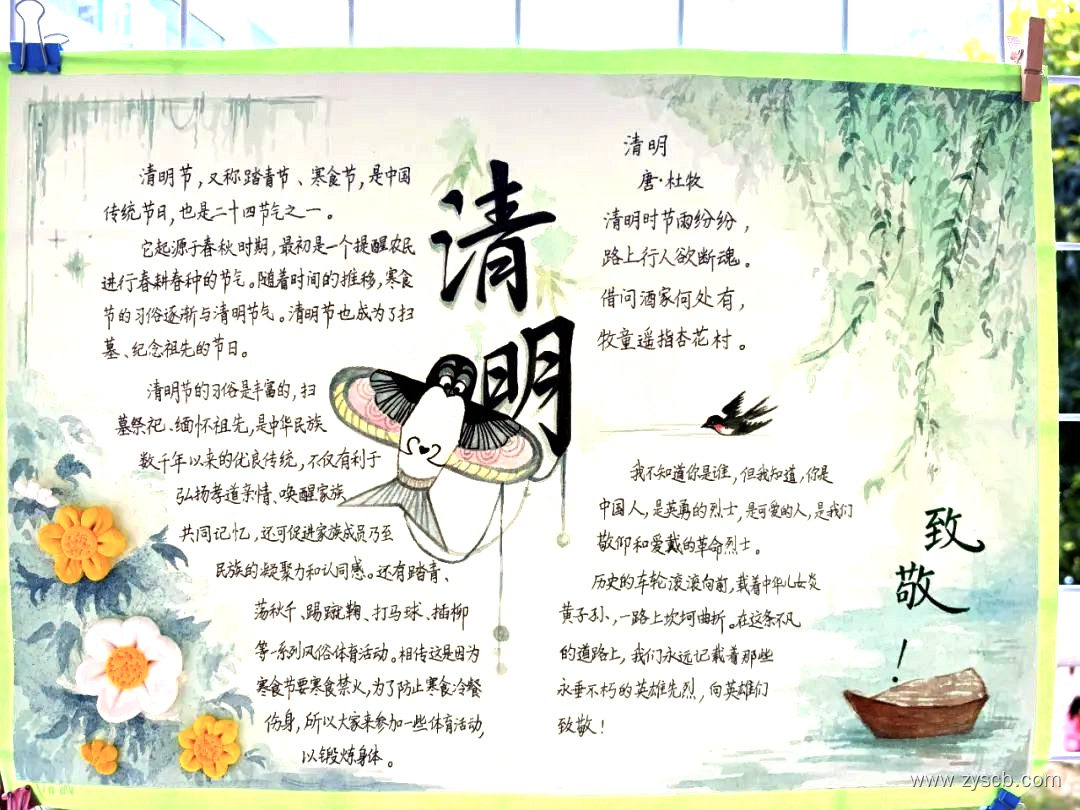 清明节，又称踏青节、寒食节，是中国
传统节日，也是二十四节气之一。
它起源于春秋时期，最初是一个提醒农民
进行春耕春种的节气。随着时间的推移，寒食
节的习俗逐渐与清明节气。清明节也成为了扫
墓、纪念祖先的节日。
清明节的习俗是丰富的，扫
墓祭祀、缅怀祖先，是中华民族
数千年以来的优良传统，不仅有利于
弘扬孝道亲情、唤醒家族
共同记忆，还可促进家族成员乃至
民族的凝聚力和认同感。还有踏青、
荡秋千、踢蹴鞠、打马球、插柳
等一系列风俗体育活动。相传这是因为
寒食节要寒食禁火，为了防止寒食冷餐
伤身，所以大家来参加一些体育活动，
以锻炼身体。
清明
清明
唐·杜牧
清明时节雨纷纷，
路上行人欲断魂。
借问酒家何处有，
牧童遥指杏花村。
我不知道你是谁，但我知道，你是
中国人，是英勇的烈士，是可爱的人，是我们
敬仰和爱戴的革命烈士。
历史的车轮滚滚向前，载着中华儿女炎
黄子孙，一路上坎坷曲折。在这条不凡
的道路上，我们永远记载着那些
永垂不朽的英雄先烈，向英雄们
致敬！
致敬！
www.zyscb.com